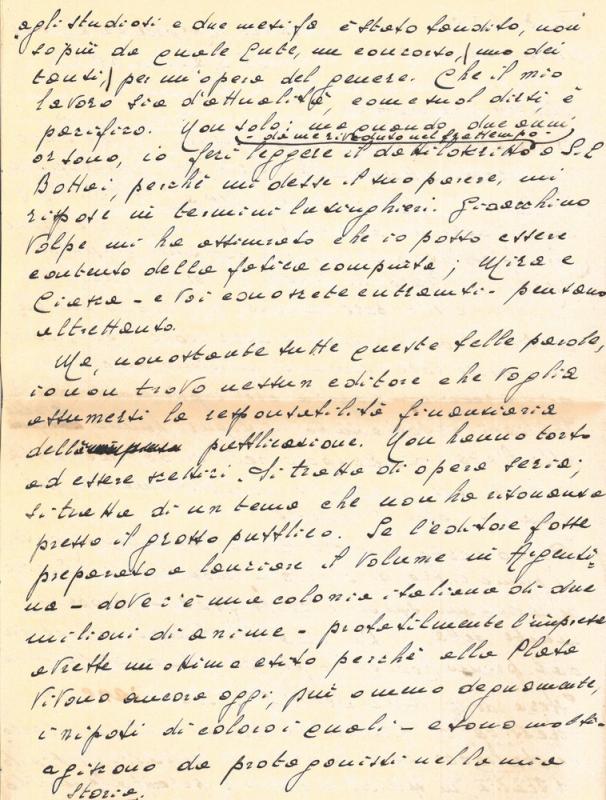 agli studiosi e due mesi fa è stato bandito, non
so più da quale Ente, un concorso, / uno dei
tanti, / per un'opera del genere. Che il mio
lavoro sia d'attualità, come suol dirsi, è
pacifico. Non solo; ma quando, due anni
da me riveduto nel frattempo
or sono, io feci leggere il dattiloscritto a S.E.
Bottai, perchè mi desse il suo parere, mi
rispose in termini lusinghieri. Gioacchino
Volpe mi ha assicurato che io posso essere
contento della fatica compiuta; Mira e
Ciasca - e Voi conoscete entrambi - pensano
altrettanto.
Ma, nonostante tutte queste belle parole,
io non trovo nessun editore che voglia
assumersi la responsabilità finanziaria
della pubblicazione. Non hanno torto
ad essere scettici. Si tratta di opera seria;
si tratta di un tema che non ha risonanza
presso il grosso pubblico. Se l'editore fosse
preparato a lanciare il volume in Argenti=
na - dove c'è una colonia italiana di due
milioni di anime - probabilmente l'impresa
avrebbe un ottimo esito perchè alla Plata
vivono ancora oggi, più o meno degnamente,
i nipoti di coloro i quali - e sono molti -
agiscono da protagonisti nella mia
storia.